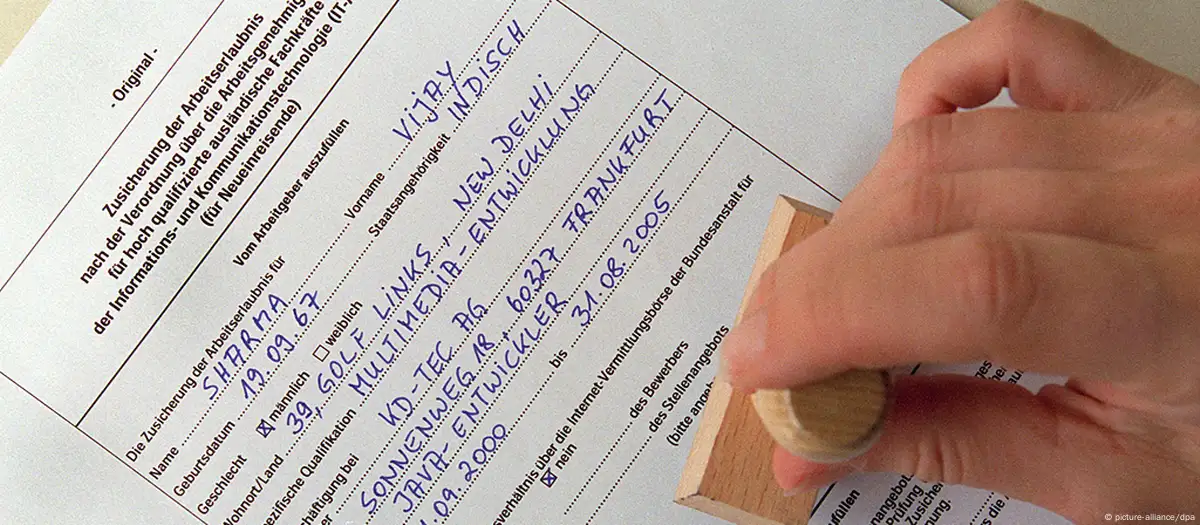 - Original -
Zusicherung der Arbeitserlaubnis
nach der Verordnung über die Arbeitsgenehmig
für hoch qualifizierte ausländische Fachkräfte
der Informations- und Kommunikationstechnologie (IT-
(für Neueinreisende)
Vom Arbeitgeber auszufüllen
Die Zusicherung der Arbeitserlaubnis für
Name SHARMA Vorname VIJAY
Geburtsdatum 19.09.67 Staatsangehörigkeit INDISCH
Geschlecht ☒ männlich ☐ weiblich
Wohnort/Land 39, GOLF LINKS, NEW DELHI
ezifische Qualifikation MULTIMEDIA-ENTWICKLUNG
chäftigung bei KD-TEC AG
SONNENWEG 18, 60327 FRANKFURT
er JAVA-ENTWICKLER
.09.2000 bis 31.08.2005
sverhältnis über die Internet-Vermittlungsbörse der Bundesanstalt für
☒ nein
des Bewerbers
des Stellenangebots
(bitte ange
füllen
© picture-alliance/dpa